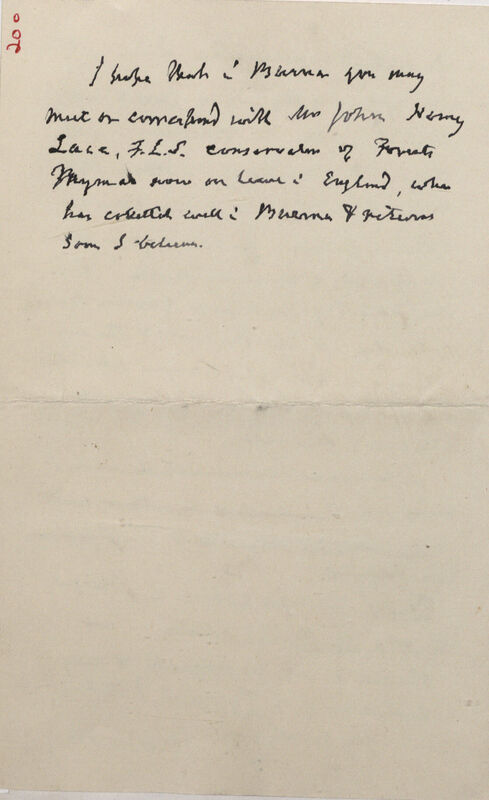 200
I hope that i Burma you may
meet or correspond with Mr John Henry
Lace, F.L.S. conservator of Forests
Maymyo now on leave i England, who
has collected well i Burma & returns
soon I believe.